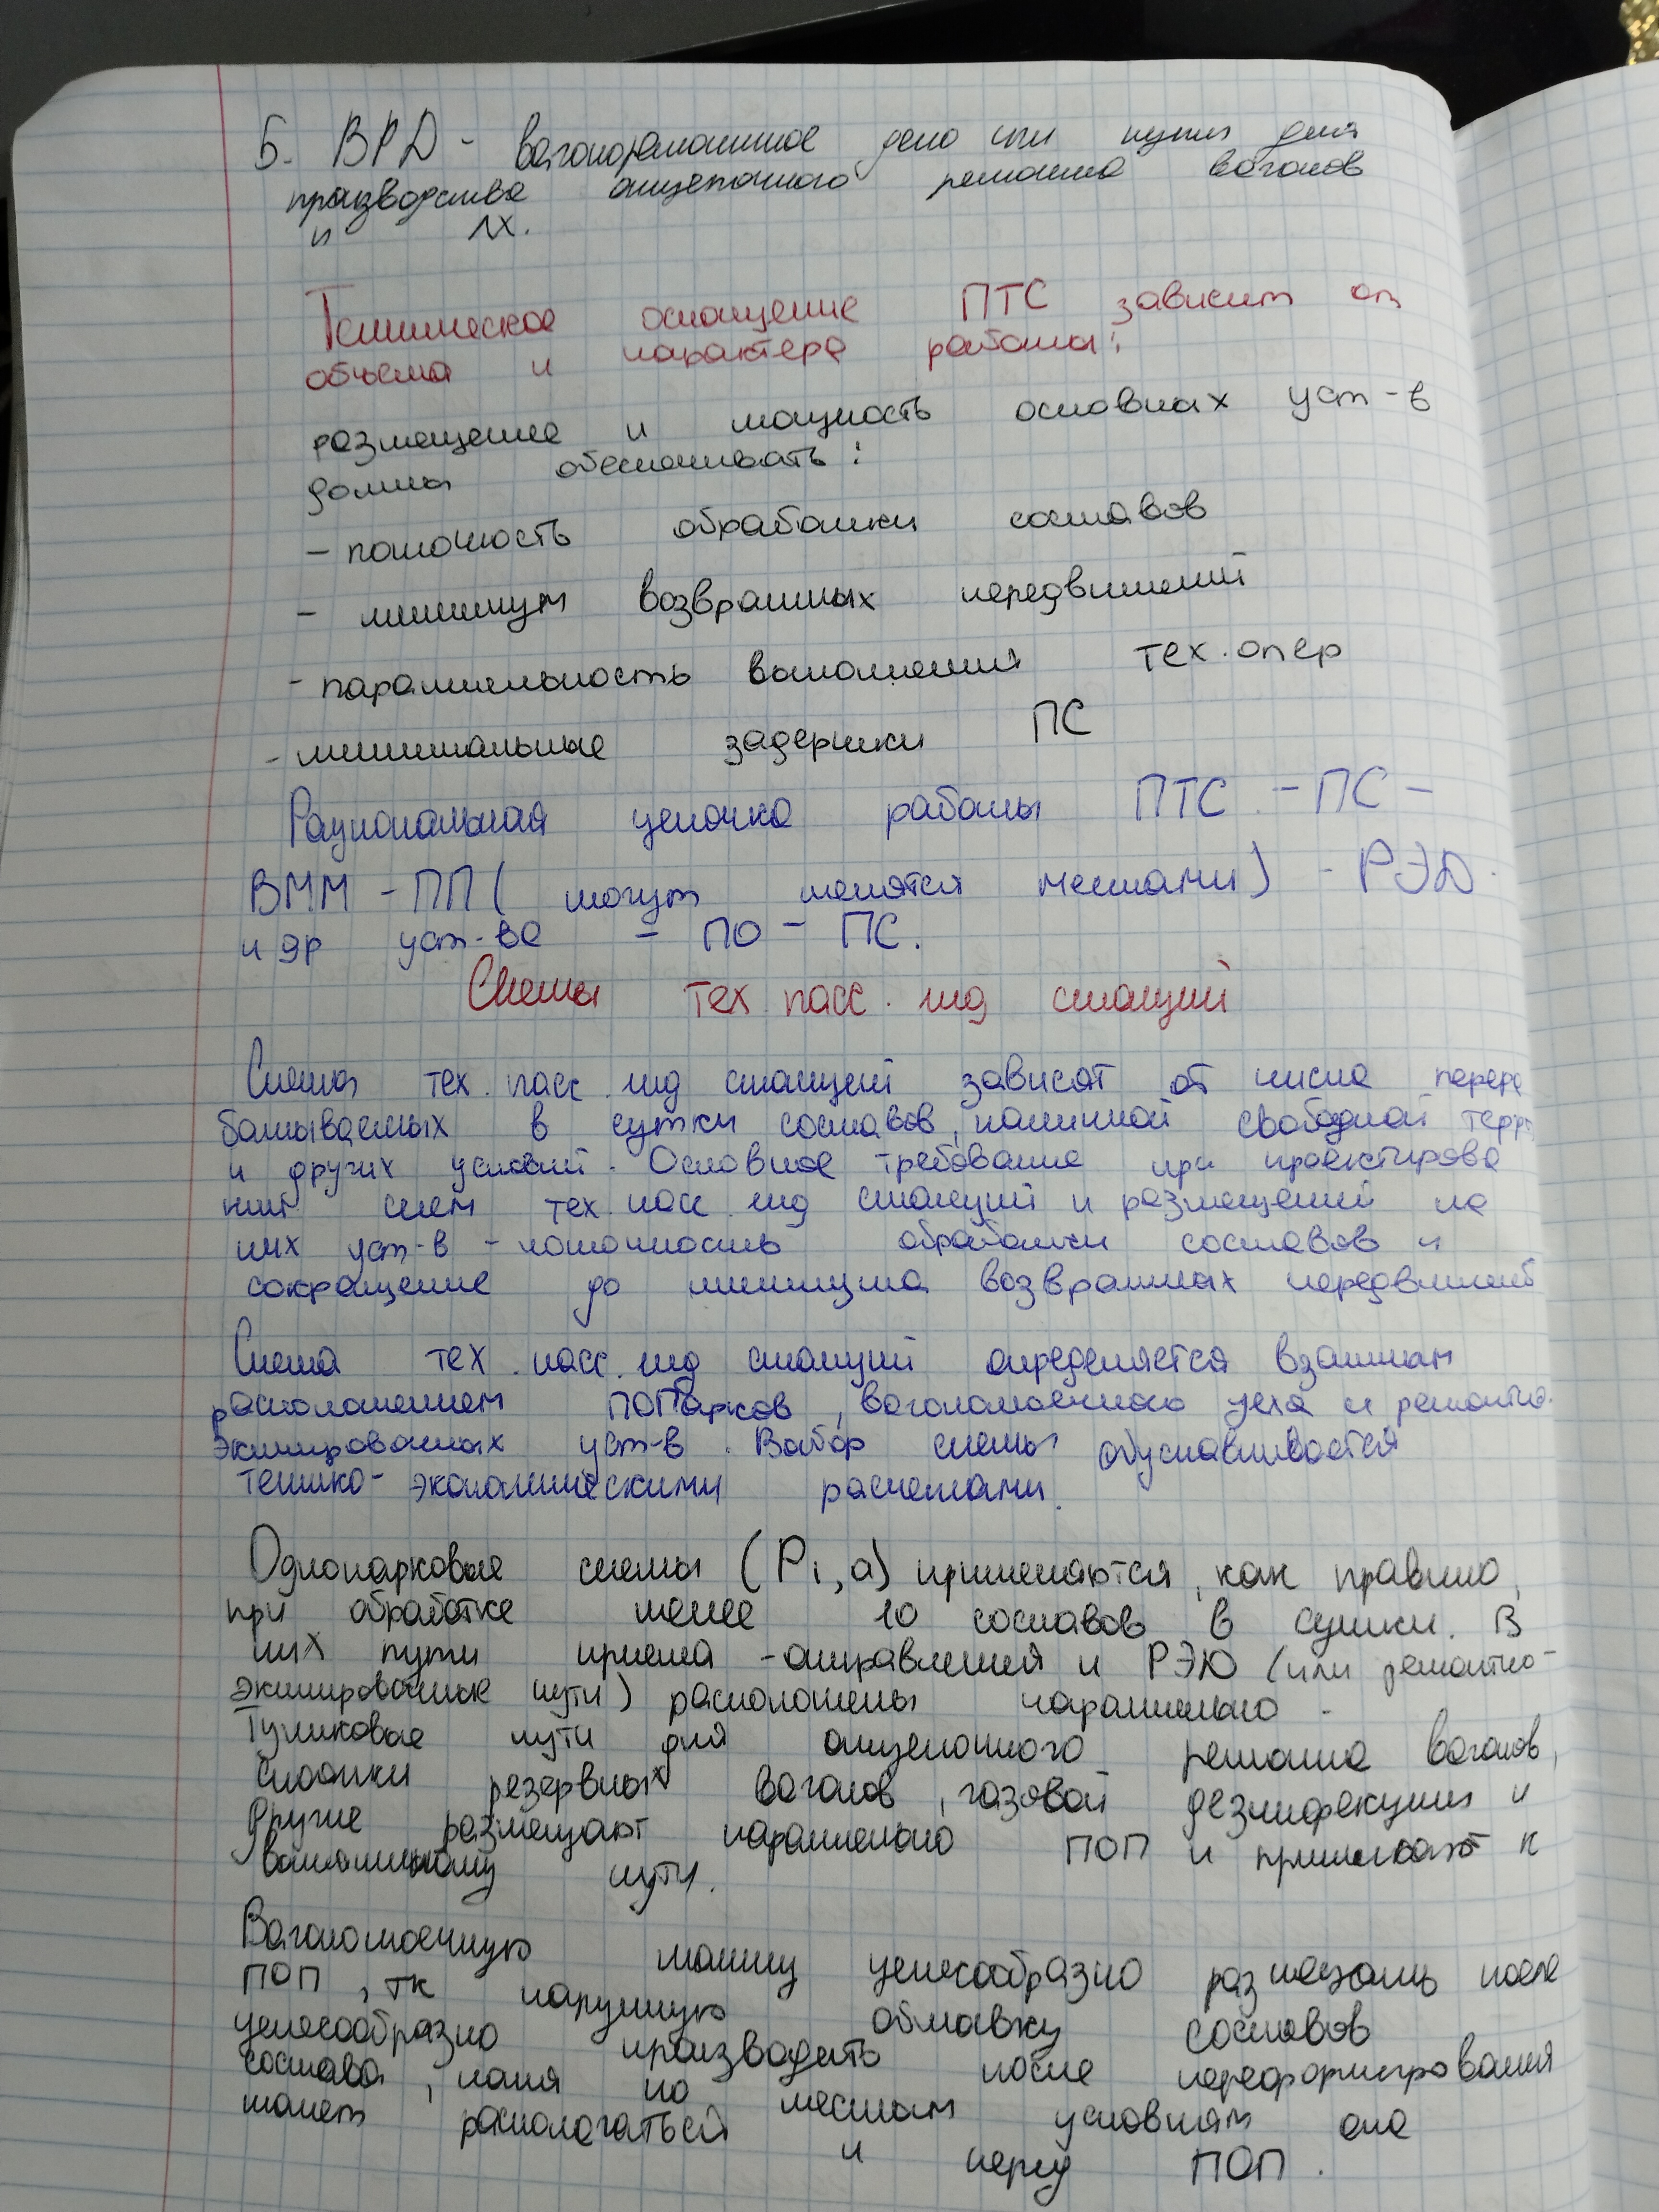 5. ВРД - вагоноремонтное депо или пути для
производства отцепочного ремонта вагонов
и ЛХ.
Техническое оснащение ПТС зависит от
объема и характера работы:
размещение и мощность основных уст-в
должны обеспечивать:
- поточность обработки составов
- минимум возвратных передвижений
- параллельность выполнения тех. опер
- минимальные задержки ПС
Рациональная цепочка работы ПТС - ПС -
ВММ - ПП ( могут менятся местами) - РЭД
и др уст-ва - ПО - ПС.
Схемы тех пасс. жд станций
Схема тех. пасс. жд станций зависят от числа перера
батываемых в сутки составов, наличной свободной терр
и других условий. Основное требование при проектирова
нии схем тех. пасс. жд станций и размещений на
них уст-в - поточность обработки составов и
сокращение до минимума возвратных передвижений
Схема тех. пасс. жд станций определяется взаимным
расположением ПОПарков, вагономоечного цеха и ремонтно-
экипировочных уст-в. Выбор схемы обуславливается
технико-экономическими расчетами.
Однопарковые схемы (Рi,а) применяются, как правило,
при обработке менее 10 составов в сутки. В
них пути приема - отправления и РЭД (или ремонтно-
экипировочные пути) расположены параллельно.
Тупиковые пути для отцепочного ремонта вагонов,
стоянки резервных вагонов, газовой дезинфекции и
другие размещают параллельно ПОП и примыкают к
вытяжному пути.
Вагономоечную машину целесообразно размещать после
ПОП, тк наружную обмывку составов
целесообразно производить после переформирования
состава, хотя по местным условиям она
может располагаться и перед ПОП.